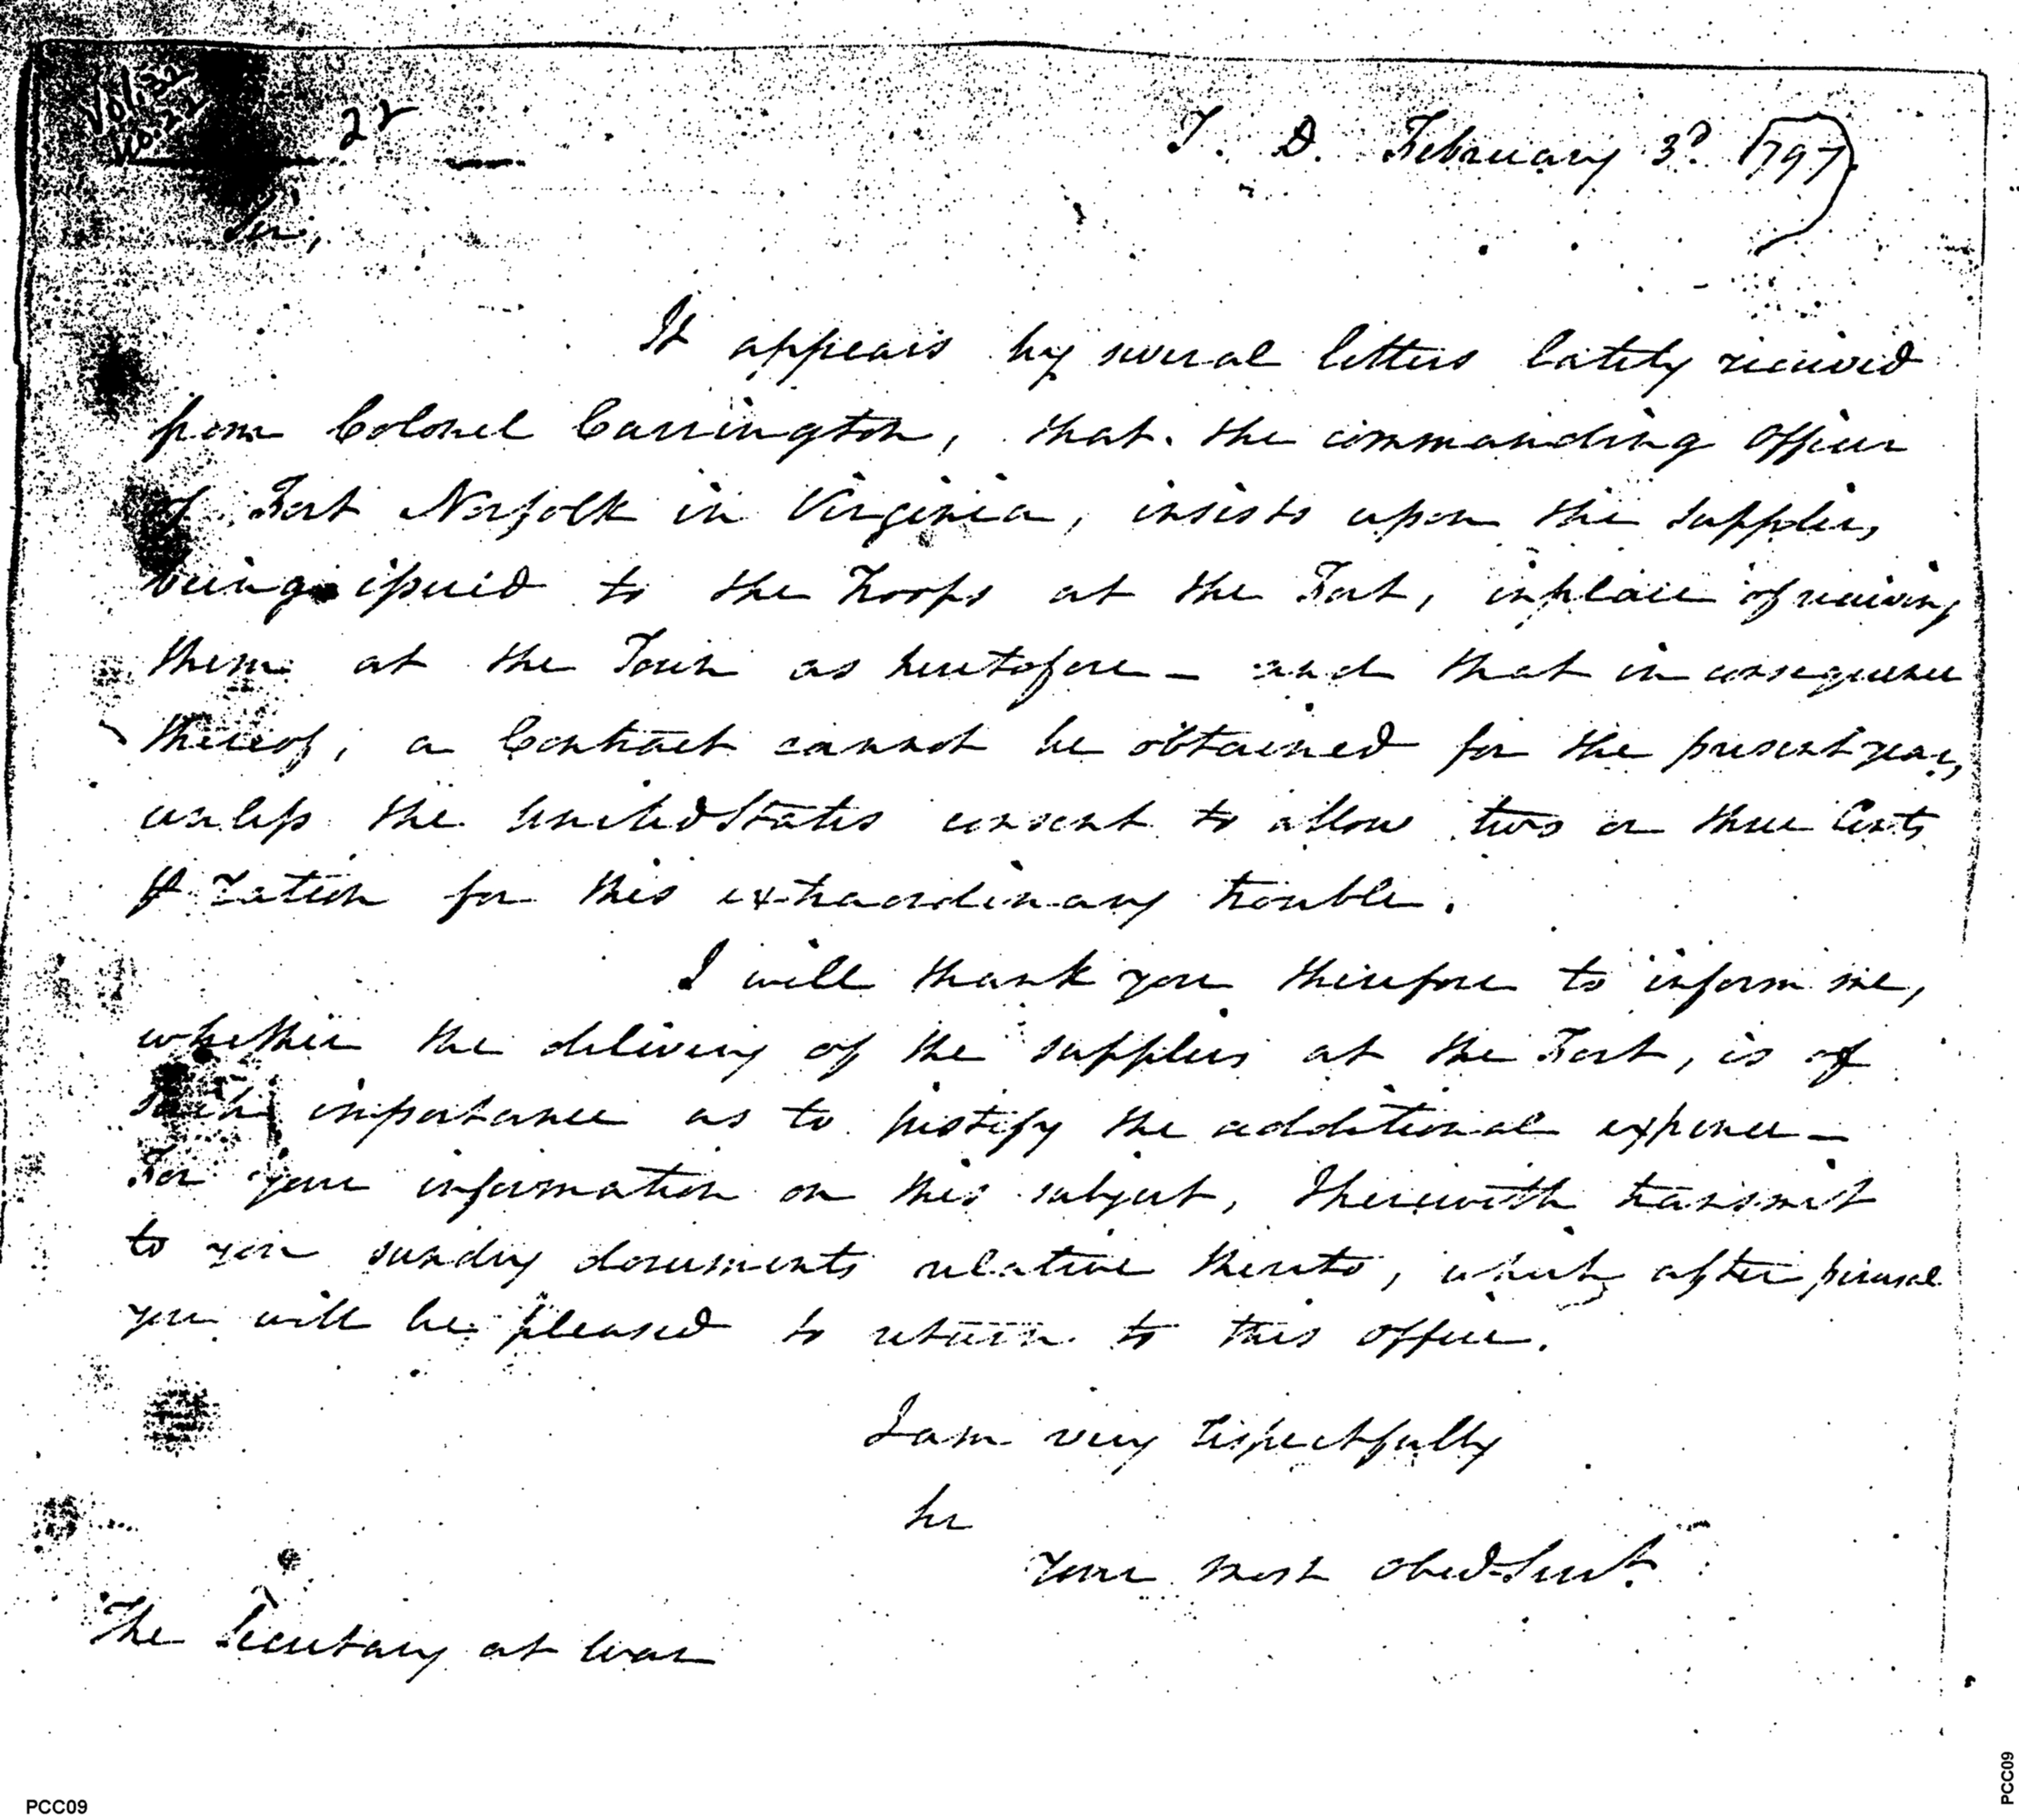 Vol. 22
No. 22
22
T. D. February 3d. 1797
Sir,
It appears by several letters lately received
from Colonel Carrington, that the commanding officer
of Fort Norfolk in Virginia, insists upon the supplies
being issued to the Troops at the Fort, in place of receiving
them at the Town as heretofore – and that in consequence
thereof, a Contract cannot be obtained for the present year,
unless the United States consent to allow two or three Cents
⅌ ration for this extraordinary trouble.
I will thank you therefore to inform me,
whether the delivery of the supplies at the Fort, is of
such importance as to justify the additional expence –
For your information on this subject, I herewith transmit
to you sundry documents relative thereto, which after perusal
you will be pleased to return to this office.
I am very respectfully
Sir
Your most obed Servt.
The Secretary at War
PCC09
PCC09